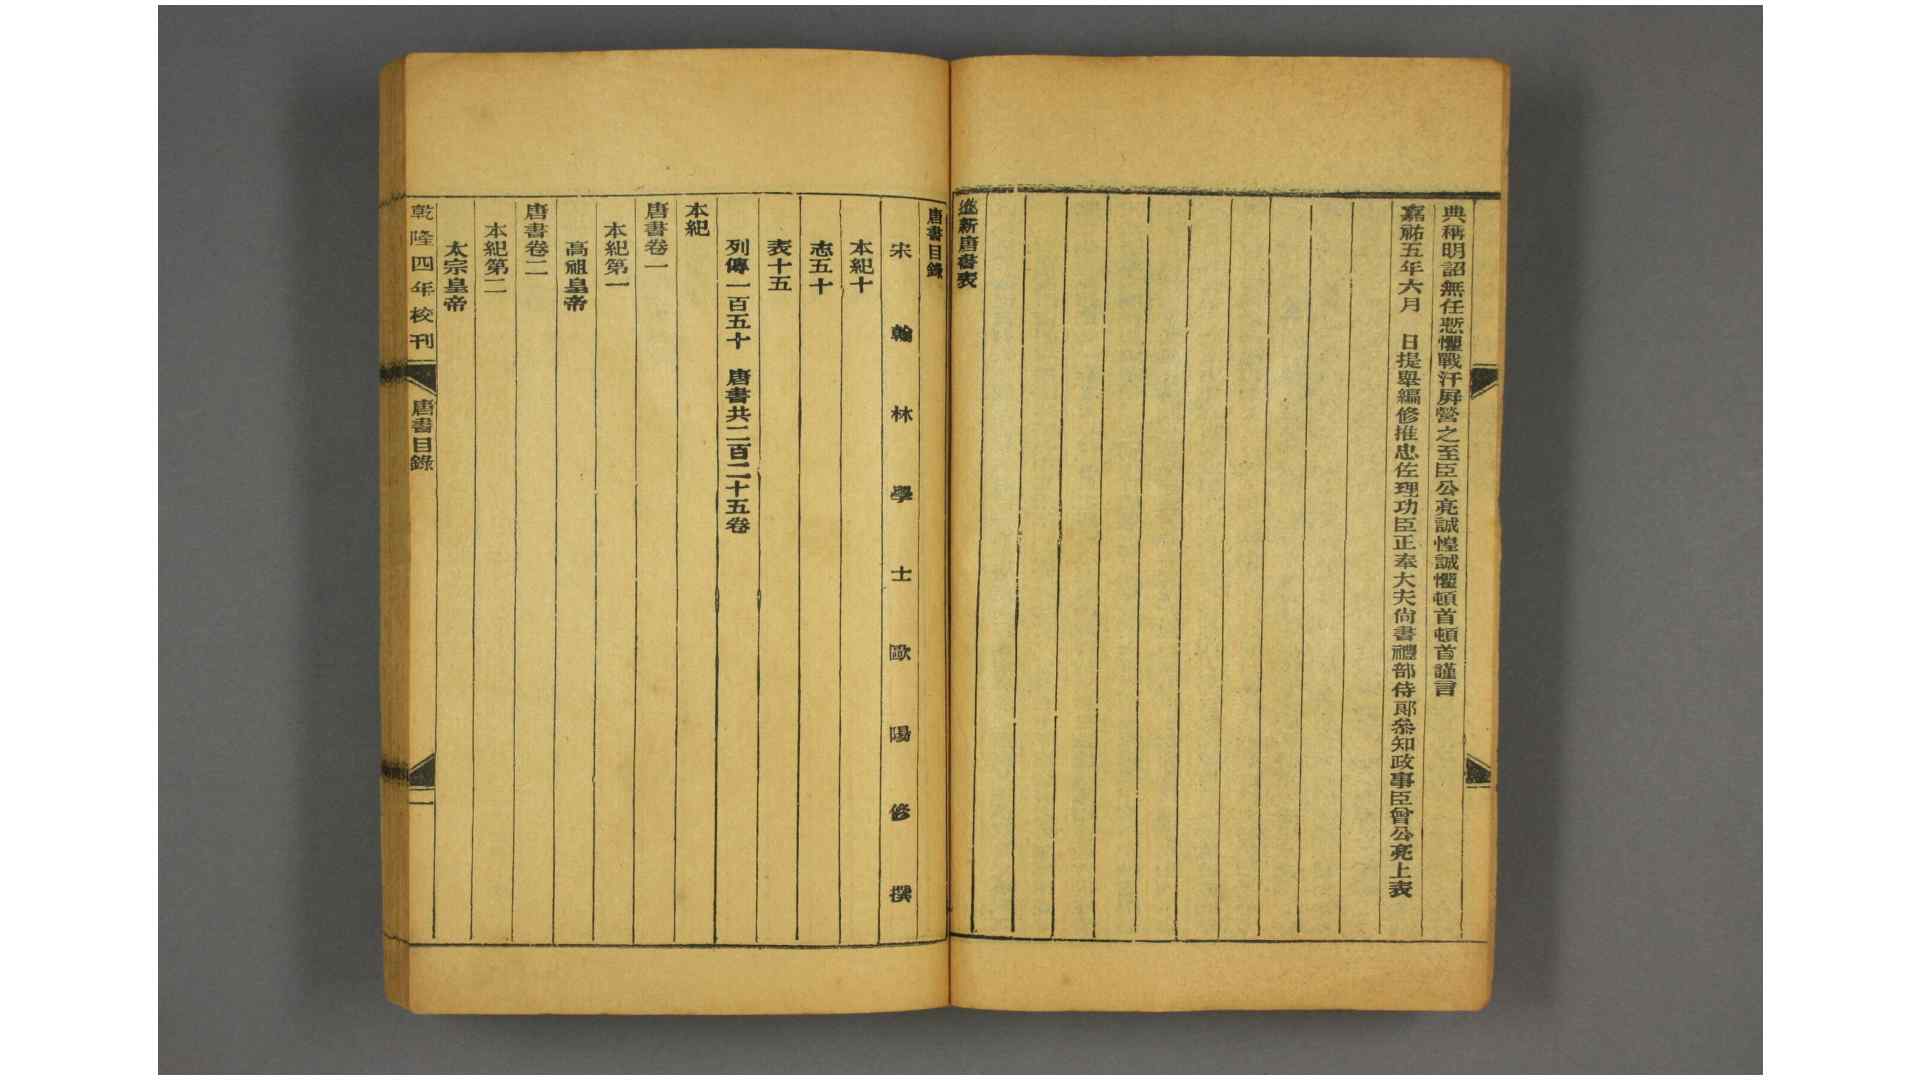 典稱明詔無任慙懼戰汗屏營之至臣公亮誠惶誠懼頓首頓首謹言
嘉祐五年六月　日提舉編修推忠佐理功臣正奉大夫尙書禮部侍郎參知政事臣曾公亮上表
進新唐書表
唐書目錄
宋翰林學士歐陽修撰
本紀十
志五十
表十五
列傳一百五十　唐書共二百二十五卷
本紀
唐書卷一
本紀第一
高祖皇帝
唐書卷二
本紀第二
太宗皇帝
乾隆四年校刊
唐書目錄